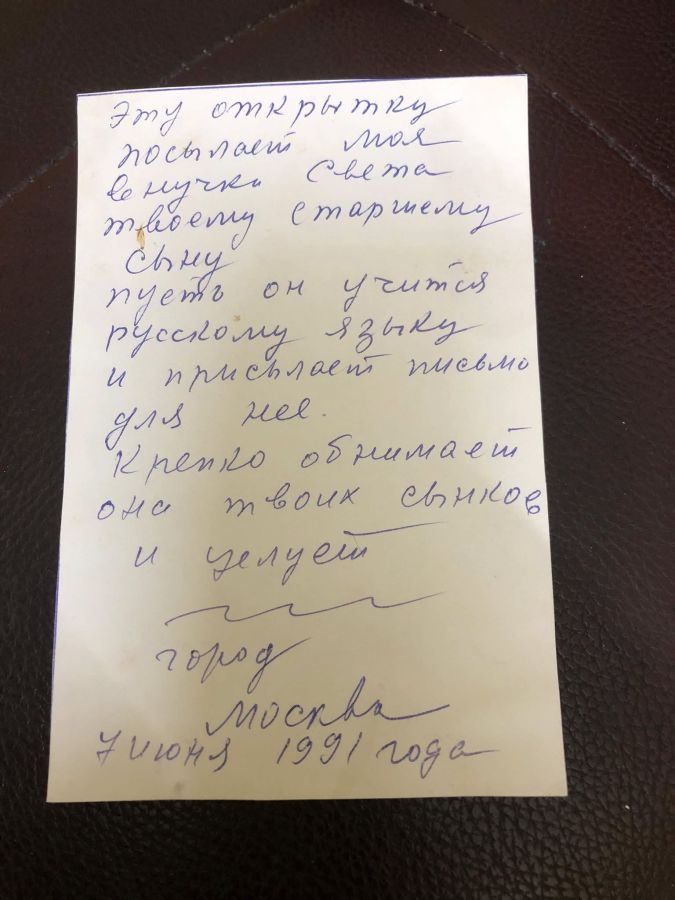 Эту открытку
посылает моя
внучка Света
твоему старшему
сыну
пусть он учится
русскому языку
и присылает письмо
для неё.
Крепко обнимает
она твоих сынков
и целует
город
Москва
7 июня 1991 года